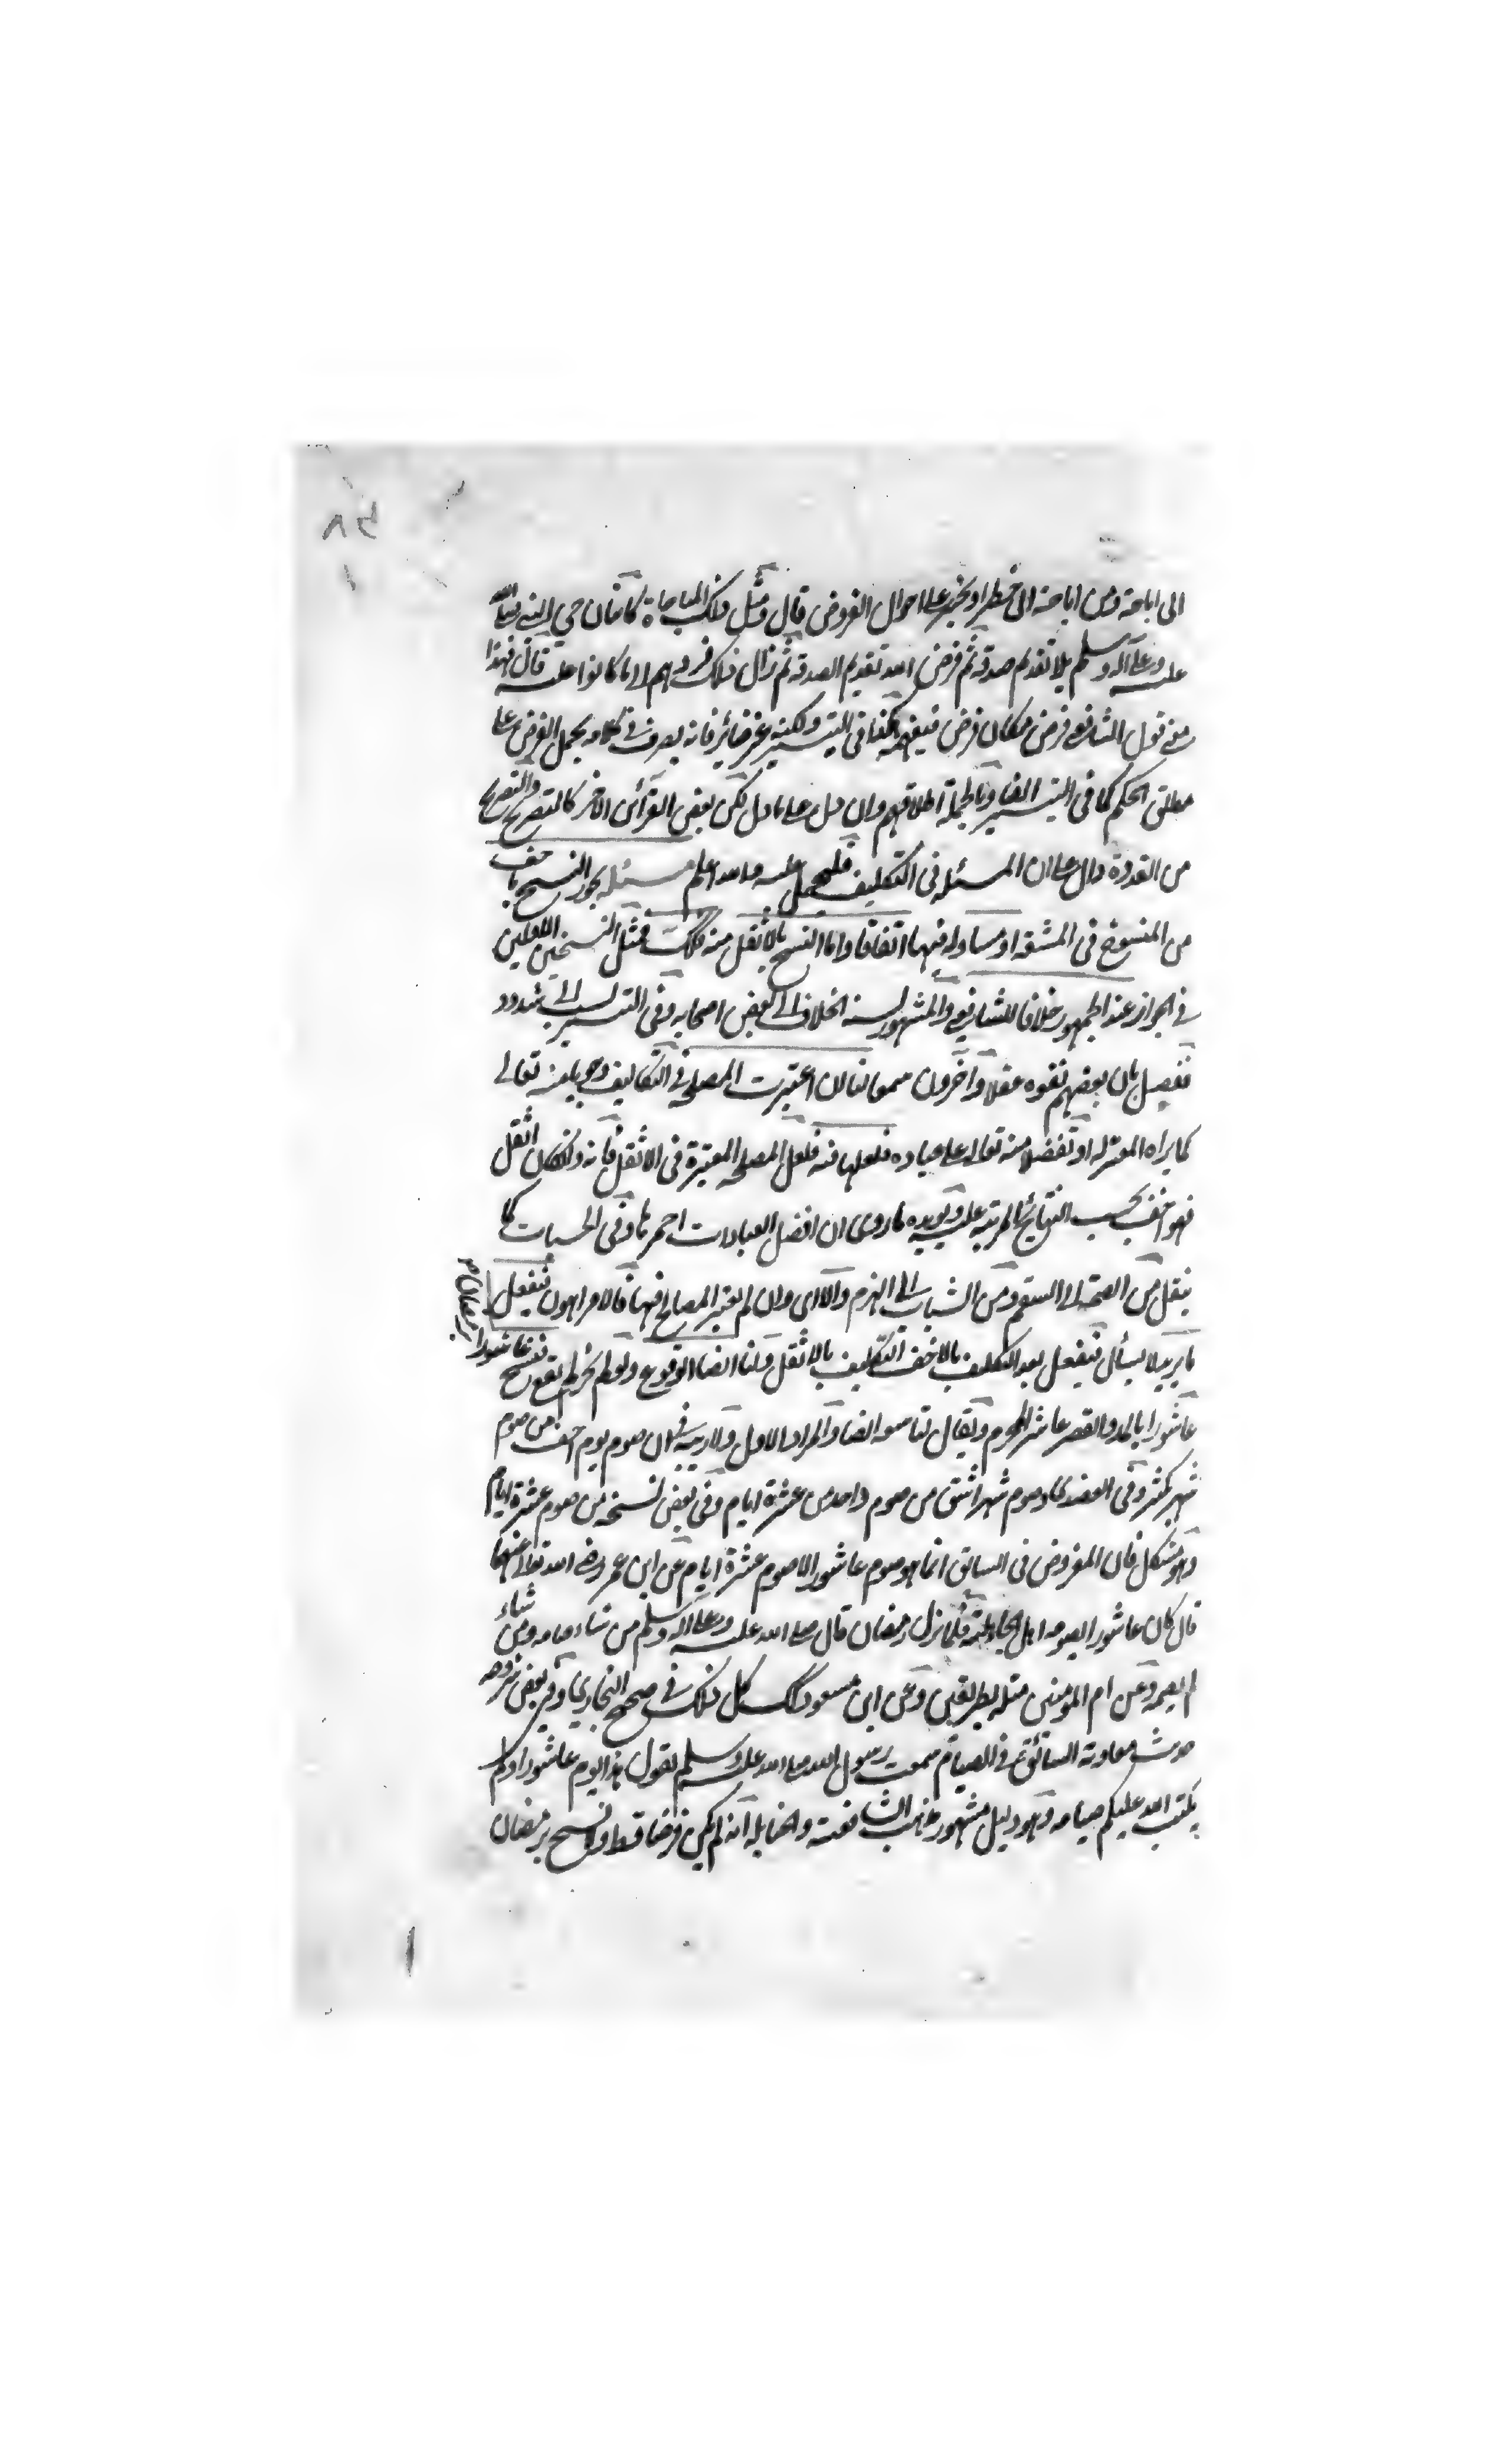 الى اباحة ومن اباحة الى حظر او تخيير على احوال الفروض قال ومثل ذلك المناجاة كان يناجى النبى صلى الله
عليه وعلى آله وسلم بلا تقديم صدقة ثم فرض الله تقديم الصدقة ثم زال ذلك فردهم الى ما كانوا عليه قال فهذا
معنى قول الشافعى فرض مكان فرض فيفهمه كذا فى التيسير ولكنه غير ضائر فانه يصرف فى كلامه بحمل الفرض على
مطلق الحكم كما فى التيسير ايضا وبالجملة اطلاقهم وان دل على ما دل لكن بعض القرائن الاخر كالتصريح والتصريح
من القدوة دال على ان المسئلة فى التكليف فليحمل عليه والله اعلم مسئلة يجوز النسخ باخف
من المنسوخ فى المشقة او مساو له فيهما اتفاقا واما النسخ بالاثقل منه فكذلك فمثل النسخين الاولين
فى الجواز عند الجمهور خلافا للشافعى والمشهور نسبة الخلاف الى بعض اصحابه وفى التيسير نسب الى شذوذ
تفصيل بان بعضهم نفوه عقلا وآخرون سمعا لنا ان اعتبرت المصلحة فى التكاليف وجوبا منه تعالى
كما يراه المعتزلة او تفضلا منه تعالى على عباده فلعلها فيه فلعل المصلحة المعتبرة فى الاثقل فانه وان كان اثقل
فهو اخف بحسب النتائج المرتبة عليه ويؤيده ما روى ان افضل العبادات احمزها وفى الحسيات كما
ينقل من الصحة الى السقم ومن الشباب الى الهرم والا اى وان لم يعتبر المصالح فيها فالامر اهون فيفعل
ما يريد لا يسأل فيفعل بعد التكليف بالاخف التكليف بالاثقل ولنا ايضا الوقوع ولو لم يجز لم يقع نسخ عاشورا برمضان
عاشورا بالمد والقصر عاشر المحرم ويقال لتاسعه ايضا والمراد الاول ولا ريب فى ان صوم يوم اخف من صوم
شهر بكثير وفى العضدى وصوم شهر اشق من صوم واحد من عشرة ايام وفى بعض نسخه من صوم عشرة ايام
وهو مشكل فان المفروض فى السابق انما هو صوم عاشورا لا صوم عشرة ايام عن ابن عمر رضى الله تعالى عنهما
قال كان عاشورا يصومه اهل الجاهلية فلما نزل رمضان قال صلى الله عليه وعلى آله وسلم من شاء صامه ومن شاء
لم يصمه وعن ام المؤمنين مثله بطريقين وعن ابن مسعود كذلك كل ذلك فى صحيح البخارى وفى بعض شروحه
حديث معاوية السابق فى الصيام سمعت رسول الله صلى الله عليه وسلم يقول هذا يوم عاشورا ولم
يكتب الله عليكم صيامه وهو دليل مشهور مذهب الشافعية والحنابلة انه لم يكن فرضا قط ولا نسخ برمضان